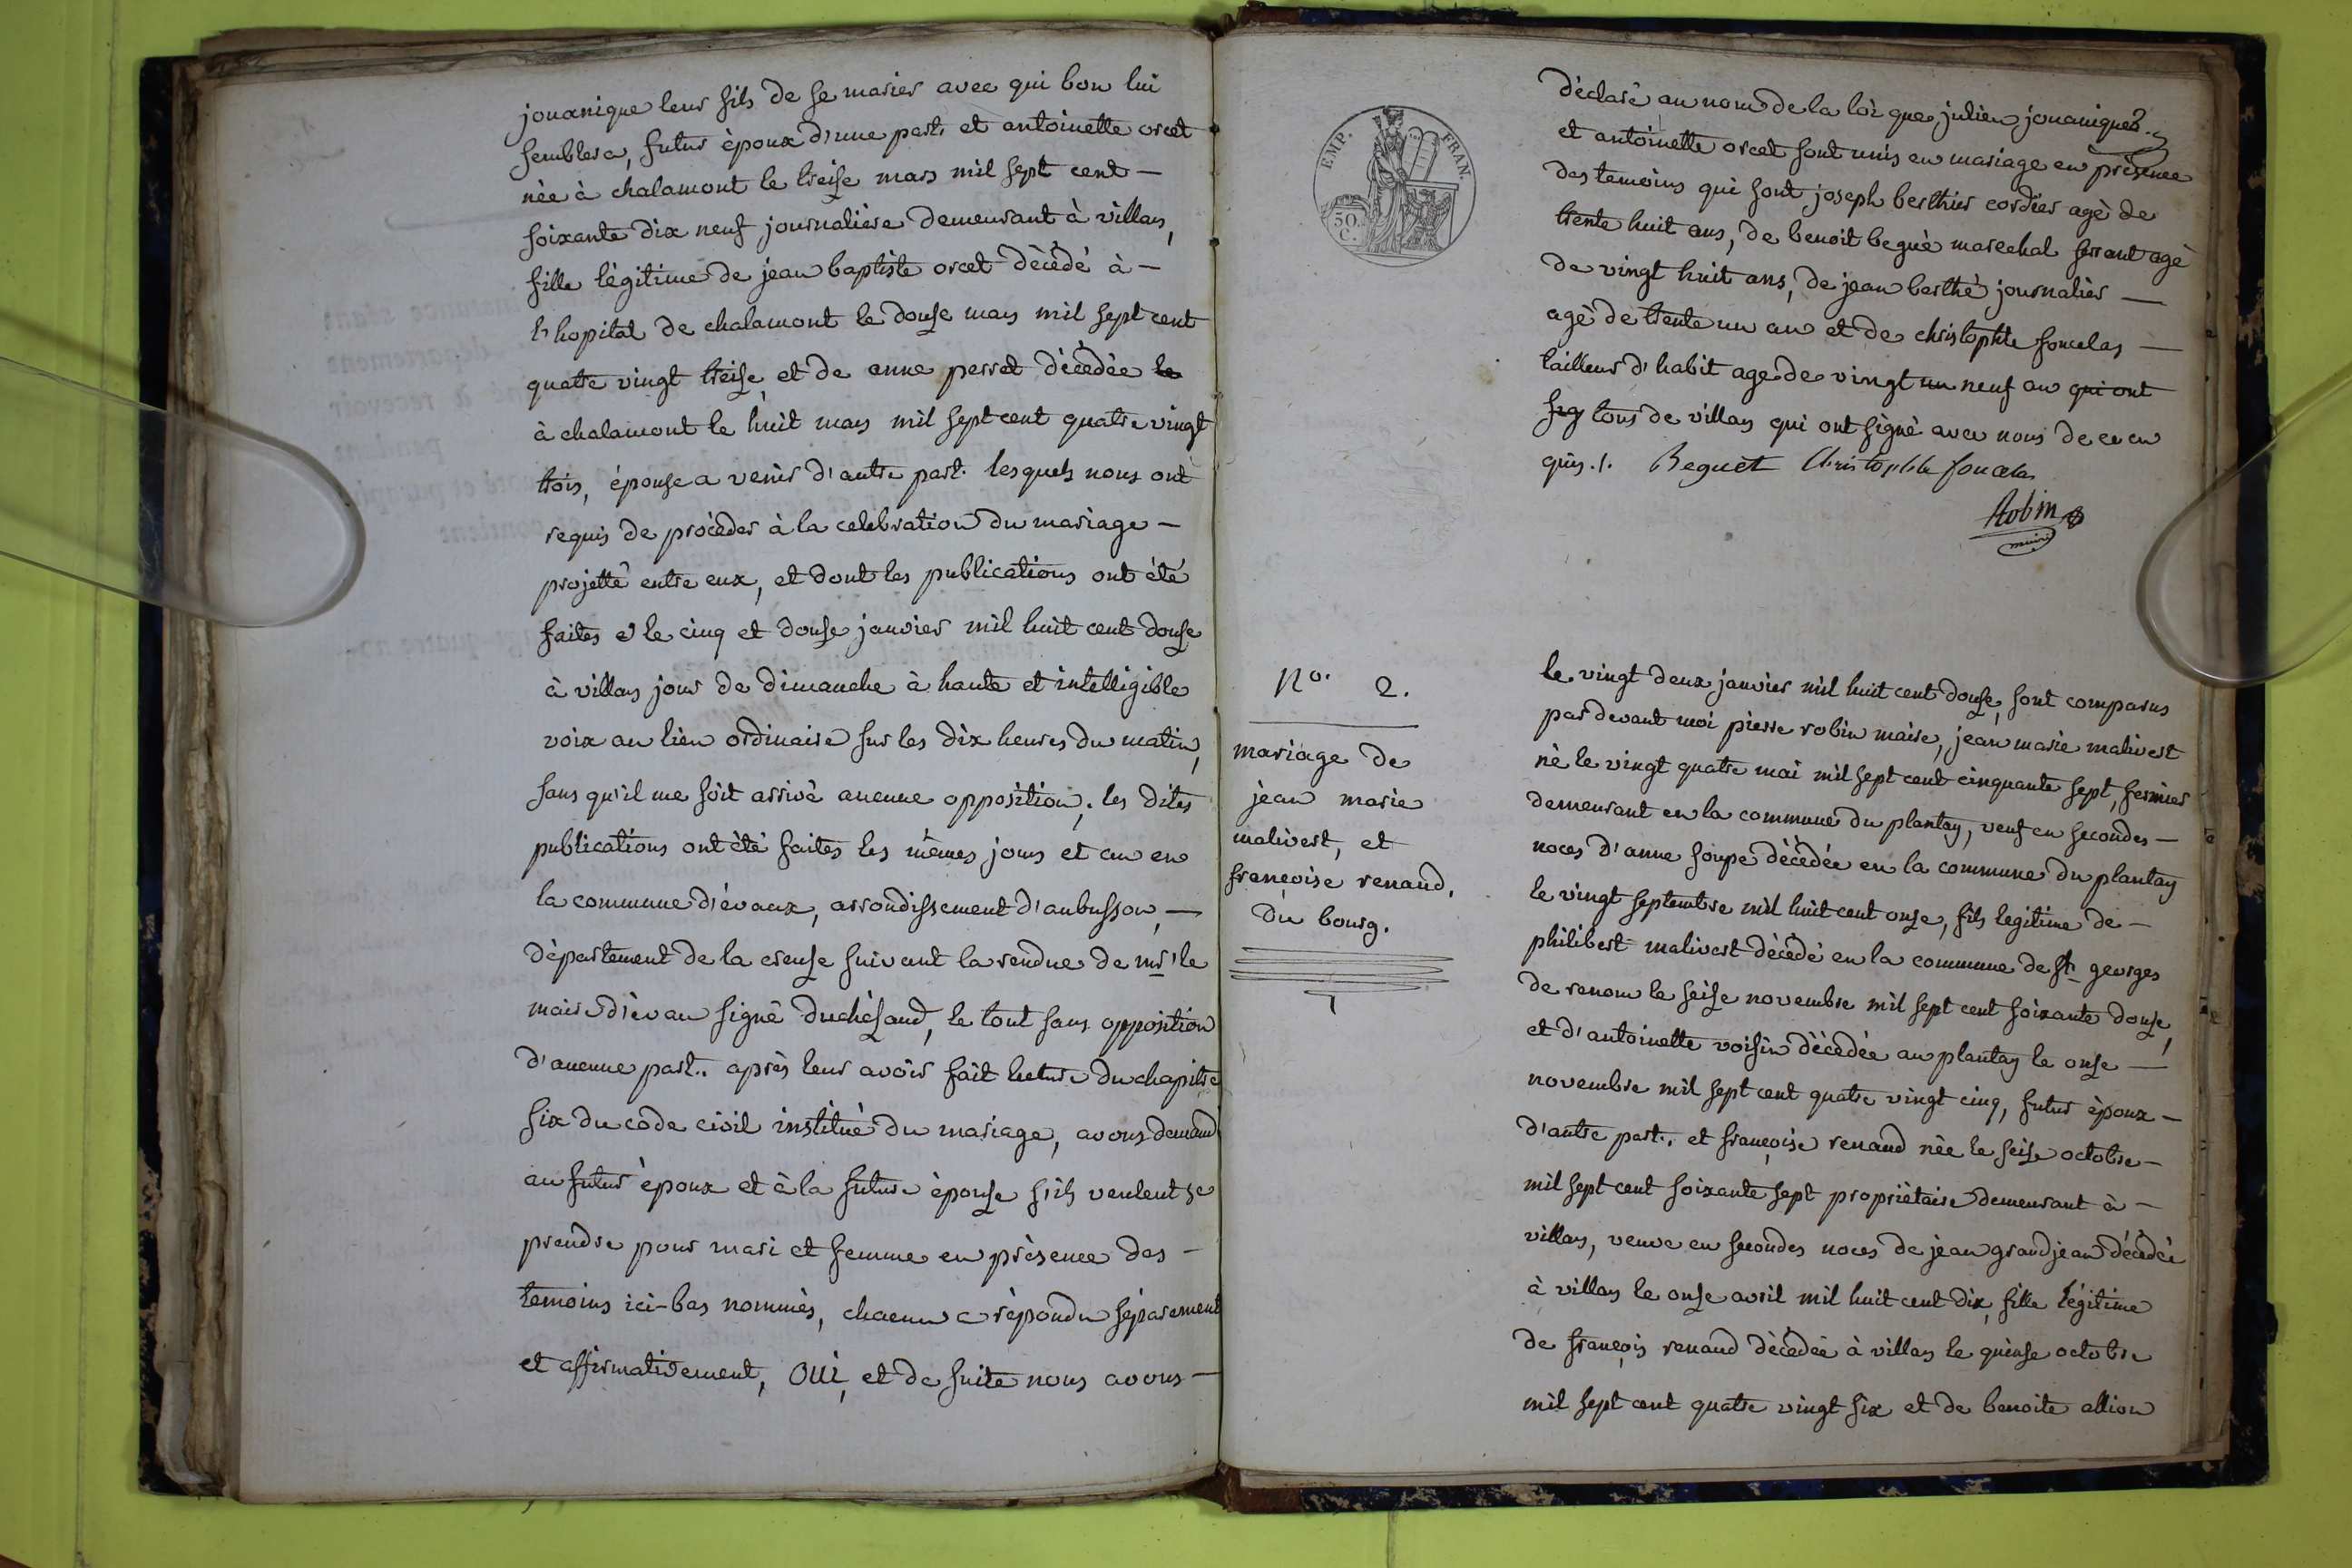 jouanique leur fils de se marier avec qui bon lui
semblera, futur èpoux d'une part. et antoinette orcet
nèe à chalamont le treise mars mil sept cent —
soixante dix neuf journalière demeurant à villars,
fille lègitime de jean baptiste orcet dècèdè à —
l'hopital de chalamont le douse mars mil sept cent
quatre vingt treise, et de anne perret dècèdèe le
à chalamont le huit mars mil sept cent quatre vingt
trois, épouse a venir d'autre part. lesquels nous ont
requis de procèder à la celebration du mariage —
projettè entre eux, et dont les publications ont étè
faites le cinq et douse janvier mil huit cent douse
à villars jour de dimanche à haute et intelligible
voix au lieu ordinaire sur les dix heures du matin,
sans qu'il me soit arrivè aucune opposition; les dites
publications ont ètè faites les mêmes jours et an en
la commune d'èvaux, arrondissement d'aubusson, —
dèpartement de la creuse suivant la rendue de mr le
maire d'èvau signè duchèsaud, le tout sans opposition
d'aucune part.. après leur avoir fait lecture du chapitre
six du code civil institué du mariage, avons demand
au futur èpoux et à la future èpouse s'ils veulent se
prendre pour mari et femme en prèsence des —
temoins ici-bas nommès, chacun a rèpondu sèparement
et affirmativement, OUI, et de suite nous avons —
EMP. FRAN.
50 C.
dèclarè au nom de la loi que julien jouanique
et antoinette orcet sont unis en mariage en prèsence
des temoins qui sont joseph berthier cordier agè de
trente huit ans, de benoit beguè marechal ferrant agè
de vingt huit ans, de jean berthè journalier —
agè de trente un an et de christophle foucelas —
tailleur d'habit age de vingt un neuf an qui ont
sig tous de villars qui ont signè avec nous de ce en
quis./. Beguet Christophle foucelas
Robin
maire
no. 2.
mariage de
jean marie
malivert, et
françoise renaud,
du bourg.
le vingt deux janvier mil huit cent douse, sont comparus
par devant moi pierre robin maire, jean marie malivert
nè le vingt quatre mai mil sept cent cinquante sept, fermier
demeurant en la commune du plantay, veuf en secondes —
noces d'anne soupe dècèdèe en la commune du plantay
le vingt septembre mil huit cent onse, fils legitime de —
philibert malivert dècèdè en la commune de st georges
de renom le seise novembre mil sept cent soixante douse,
et d'antoinette voisin dècèdèe au plantay le onse —
novembre mil sept cent quatre vingt cinq, futur èpoux —
d'autre part.. et françoise renaud nèe le seise octobre —
mil sept cent soixante sept propriètaire demeurant à —
villars, veuve en secondes noces de jean grandjean dècèdèe
à villars le onse avril mil huit cent dix, fille lègitime
de françois renaud dècedèe à villars le quinse octobre
mil sept cent quatre vingt six et de benoite allion